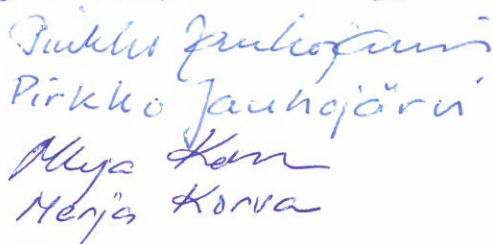 Pirkko Jauhojärvi
Pirkko Jauhojärvi
Merja Korva
Merja Korva